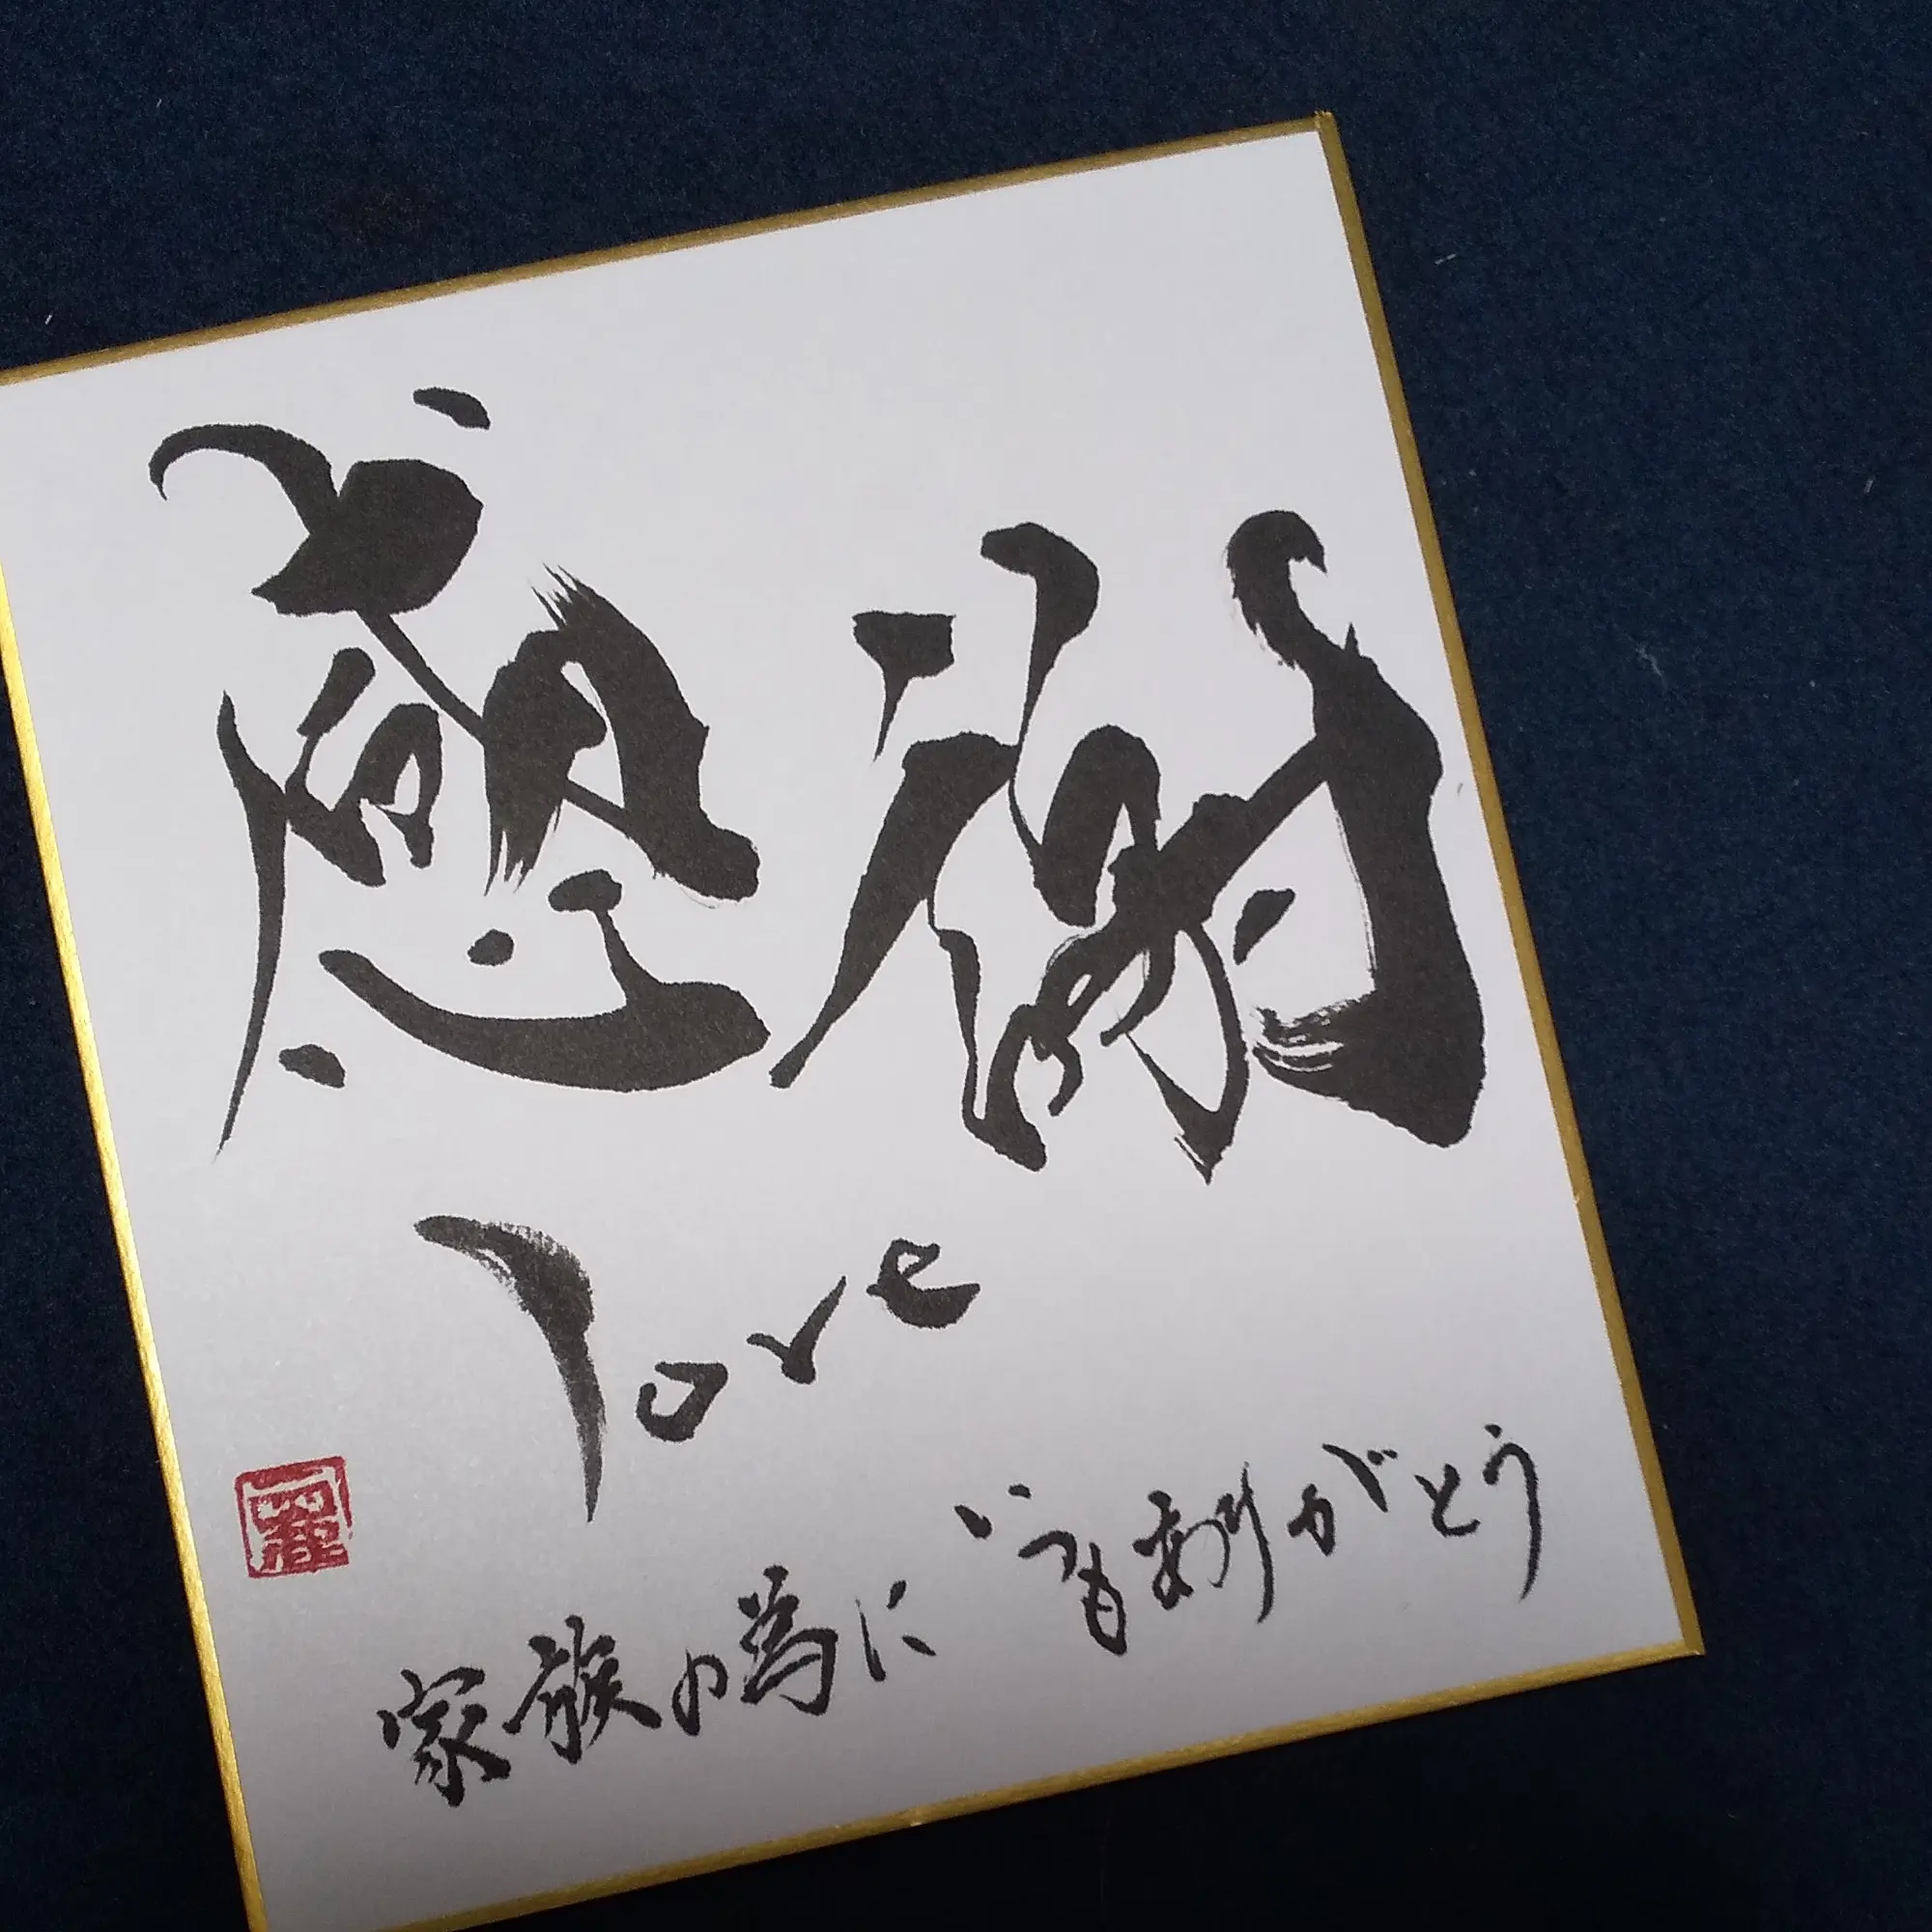 感謝
love
家族の為に いつもありがとう